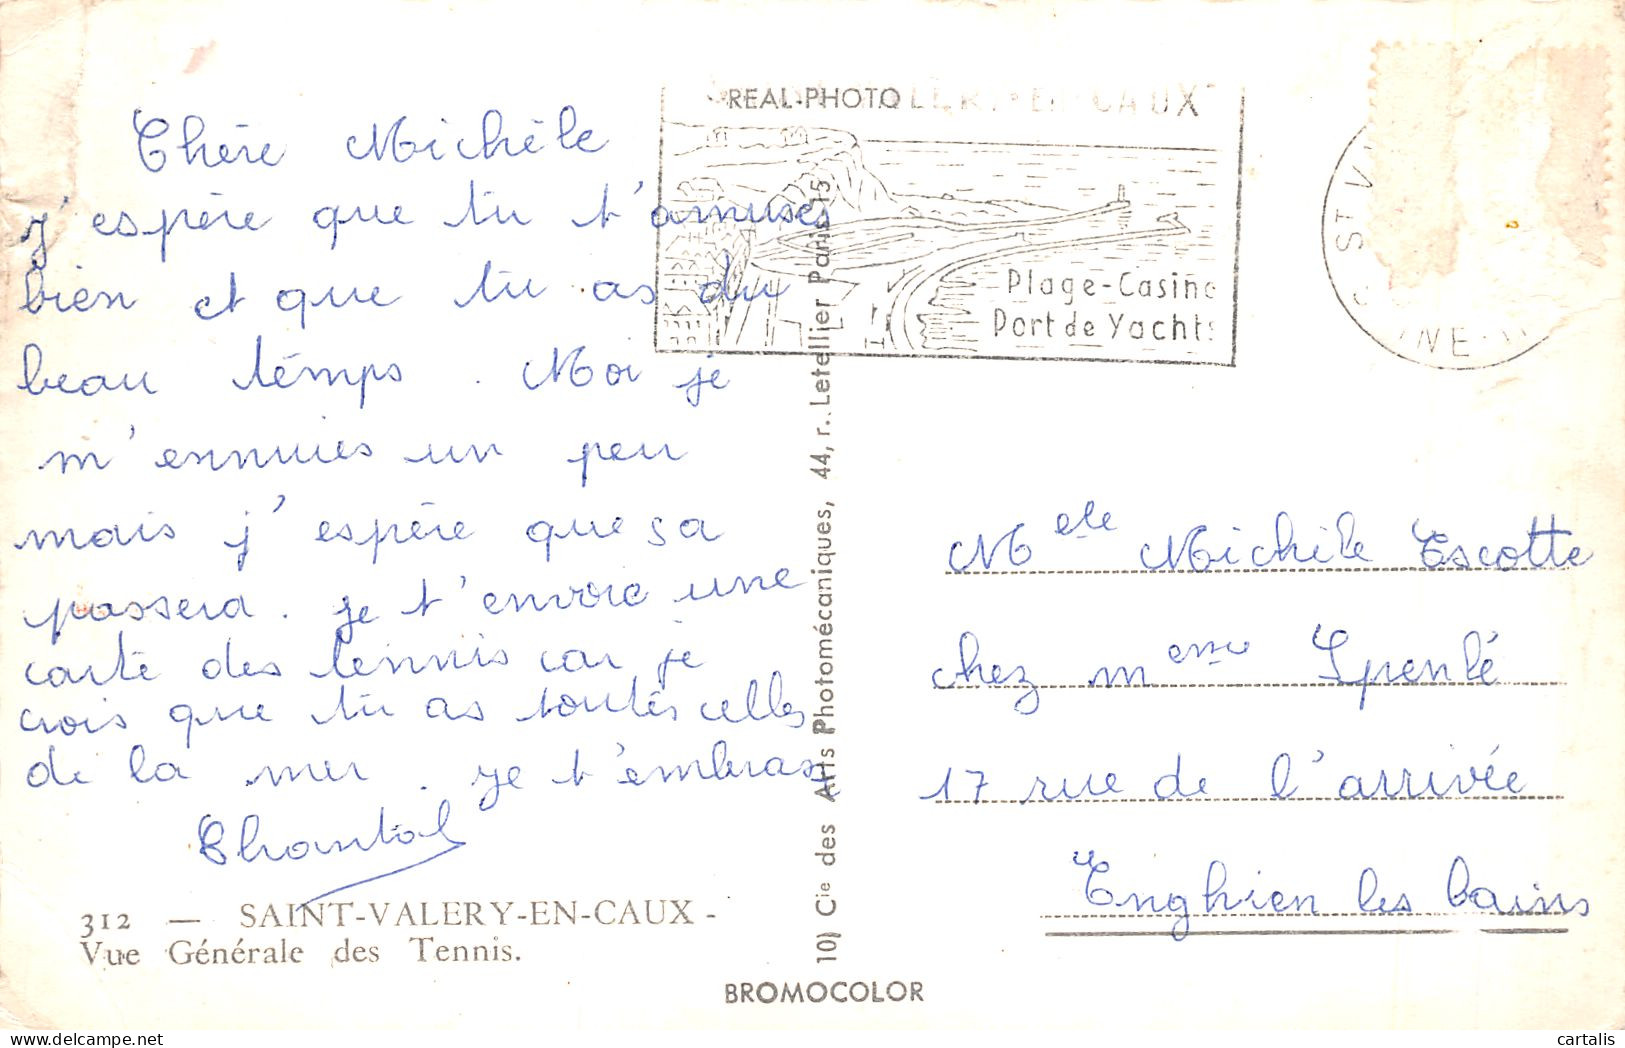 Chère Michèle
j'espère que tu t'amuses
bien et que tu as du
beau temps. Moi je
m'ennuies un peu
mais j'espère que sa
passera. je t'envoie une
carte des tennis car je
crois que tu as toutes celles
de la mer. je t'embrasse
Chantal
312 — SAINT-VALERY-EN-CAUX -
Vue Générale des Tennis.
REAL-PHOTO
LERY-EN-CAUX
Plage-Casino
Port de Yachts
ST V
INE
10) Cie des Arts Photomécaniques, 44, r. Letellier Paris-15
BROMOCOLOR
Melle Michèle Escotte
chez Meme Spenlé
17 rue de l'arrivée
Enghien les bains
cartalis